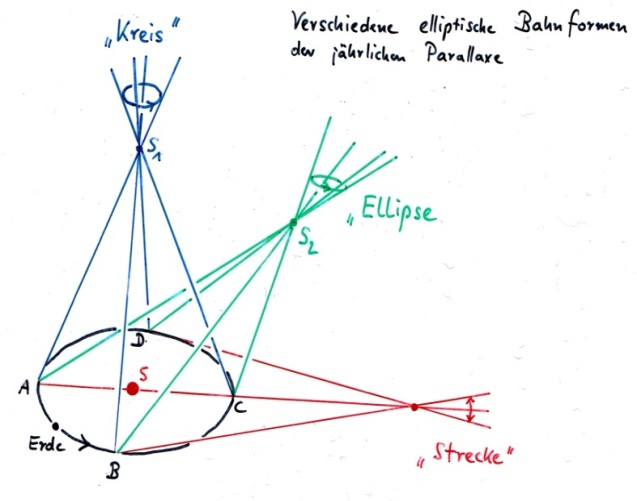 „Kreis"
Verschiedene elliptische Bahnformen
der jährlichen Parallaxe
S1
„Ellipse
S2
D
A
S
C
Erde
B
„Strecke"